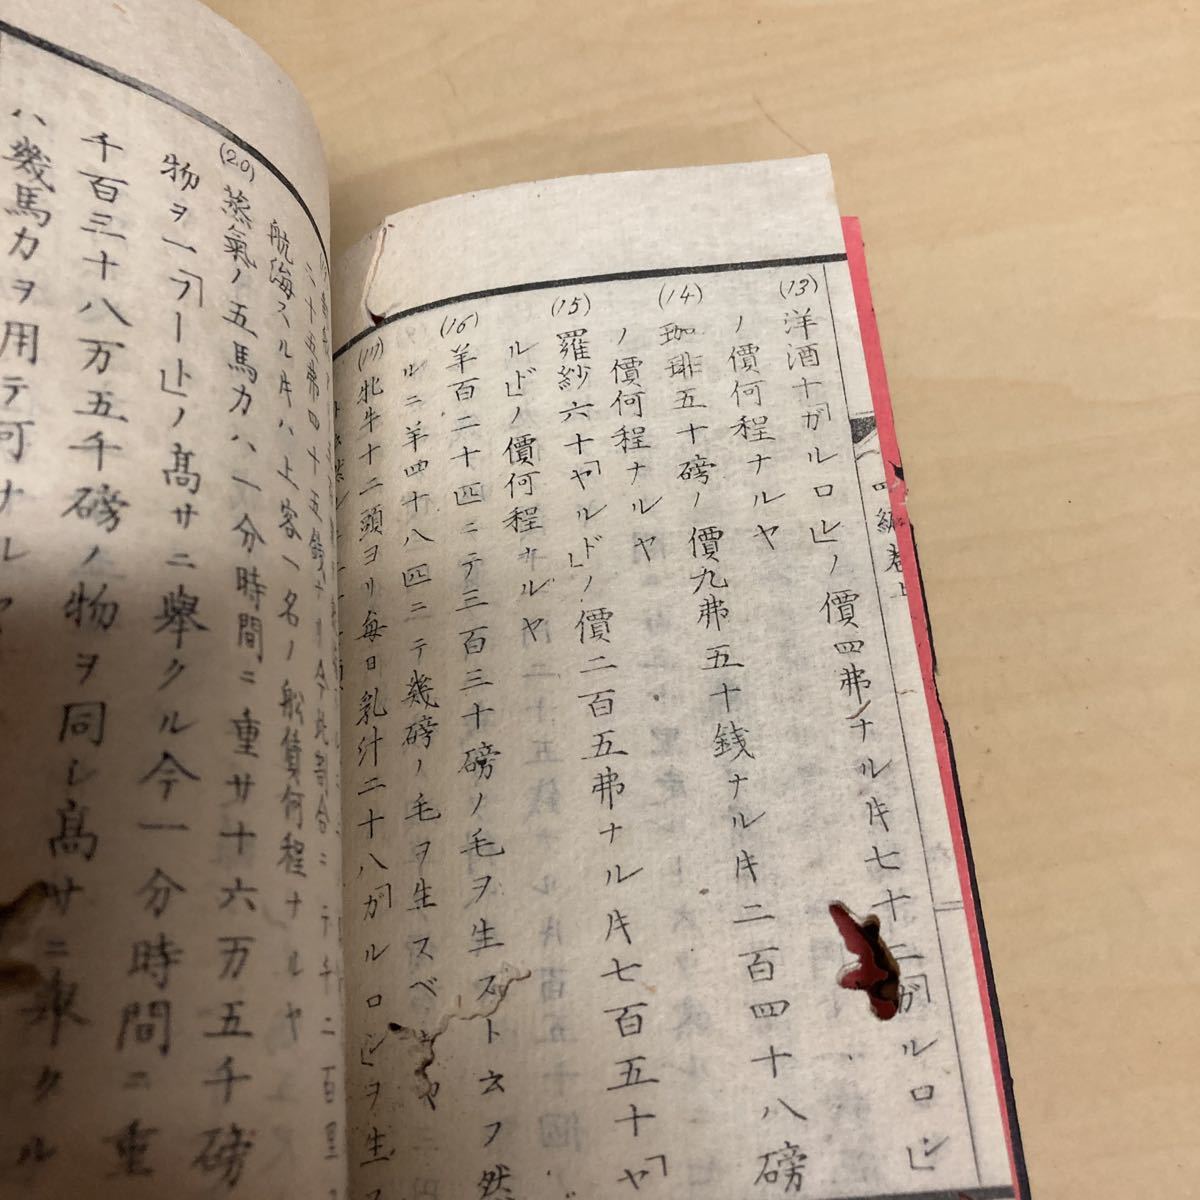 四編巻上
(13) 洋酒十「ガルロン」ノ價四弗ナル片七十二「ガルロン」
ノ價何程ナルヤ
(14) 珈琲五十磅ノ價九弗五十銭ナル片二百四十八磅
ノ價何程ナルヤ
(15) 羅紗六十「ヤルド」ノ價二百五弗ナル片七百五十「ヤ
ルド」ノ價何程ナルヤ
(16) 羊百二十四ニテ三百三十磅ノ毛ヲ生ストムフ然
ルニ羊四十八四ニテ幾磅ノ毛ヲ生スベ
(17) 牝牛十二頭ヨリ毎日乳汁二十八「ガルロン」ヲ生
二十五弗四十五銭ナリ今此割合ニテ千二百里
航海スル片ハ上客一名ノ船賃何程ナルヤ
(20) 蒸氣ノ五馬力ハ一分時間ニ重サ十六万五千磅
物ヲ一「フート」ノ髙サニ擧クル今一分時間ニ重
千百三十八万五千磅ノ物ヲ同シ髙サニ擧クル
ハ幾馬力ヲ用テ可ナルヤ